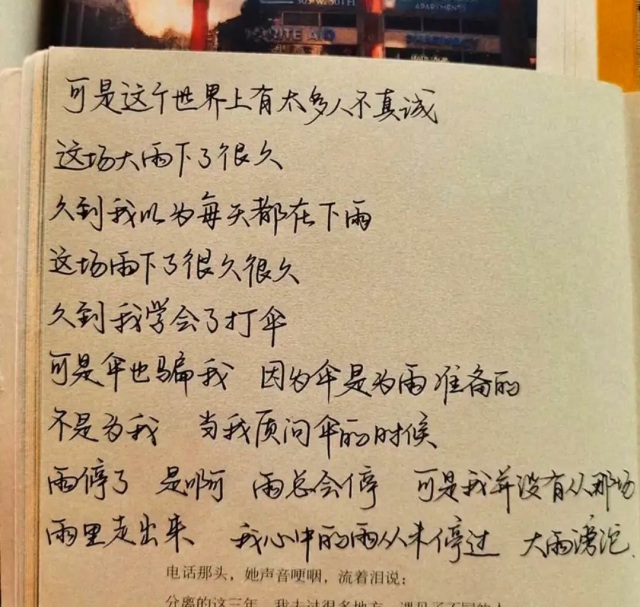 可是这个世界上有太多人不真诚
这场大雨下了很久
久到我以为每天都在下雨
这场雨下了很久很久
久到我学会了打伞
可是伞也骗我 因为伞是为雨准备的
不是为我 当我质问伞的时候
雨停了 是啊 雨总会停 可是我并没有从那场
雨里走出来 我心中的雨从未停过 大雨滂沱
电话那头，她声音哽咽，流着泪说：
分离的这三年，我去过很多地方，遇见了不同的人